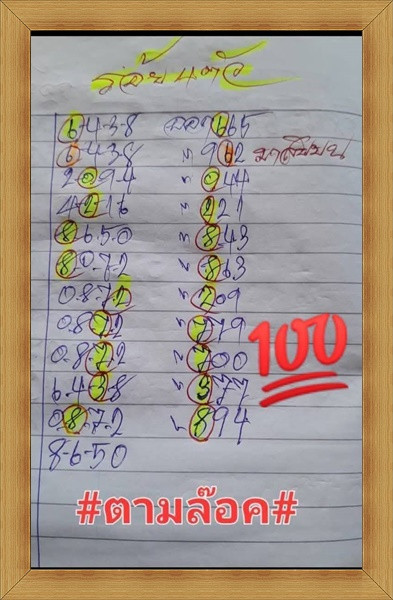 ร้อย 4 ตัว
6-4-3-8 ออก 665
6-4-3-8 " 962 มาสิบบน
2-0-9-4 " 044
4-2-1-6 " 221
8-6-5-0 " 843
8-0-7-2 " 863
0-8-7-2 " 209
0-8-7-2 " 779
0-8-7-2 " 700
6-4-3-8 " 377
0-8-7-2 " 894
8-6-5-0
100
#ตามล๊อค#